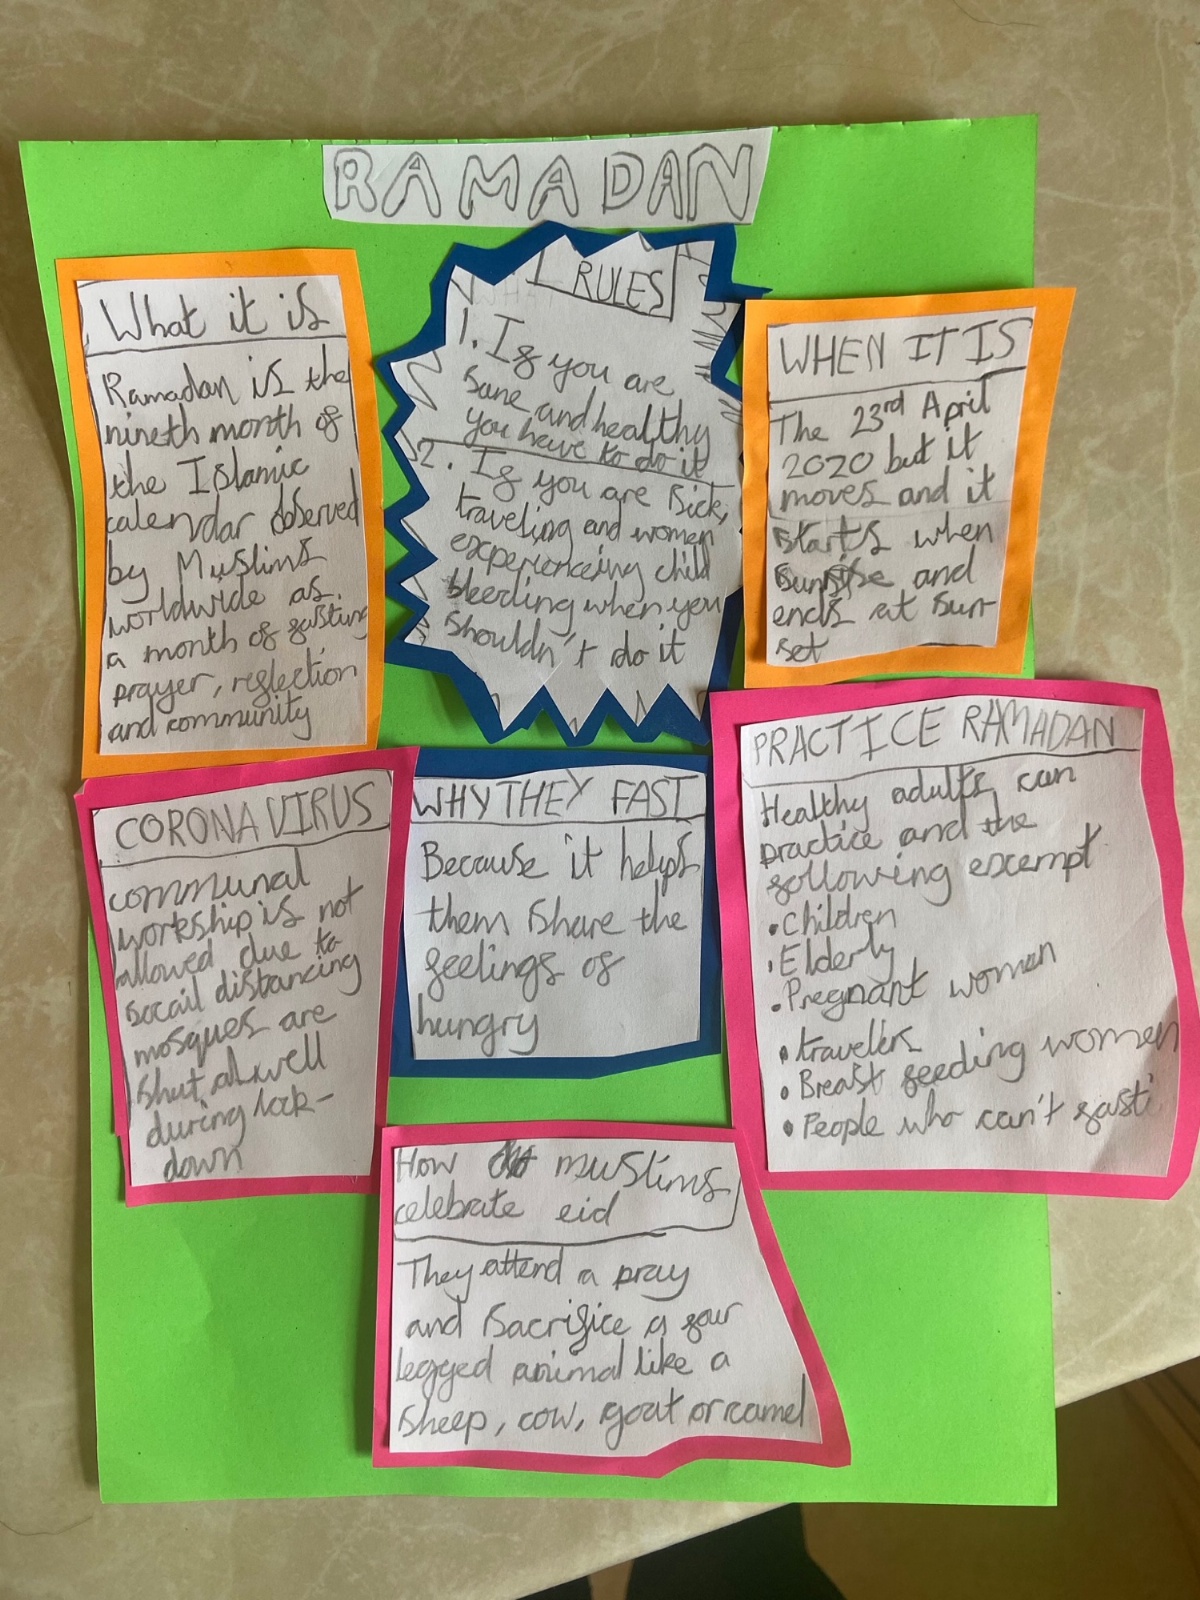 RAMADAN
What it is
Ramadan is the
nineth month of
the Islamic
calendar observed
by Muslims
worldwide as
a month of fasting
prayer, reflection
and community
RULES
1. If you are
sane and healthy
you have to do it
2. If you are sick,
traveling and women
experienceing child
bleeding when you
shouldn't do it
WHEN IT IS
The 23rd April
2020 but it
moves and it
starts when
sunrise and
ends at sun-
set
CORONA VIRUS
communal
workship is not
allowed due to
socail distancing
mosques are
shut as well
during lock-
down
WHY THEY FAST
Because it helps
them share the
feelings of
hungry
PRACTICE RAMADAN
Healthy adults can
practice and the
following excempt
• Children
• Elderly
• Pregnant women
• travellers
• Breast feeding women
• People who can't
How muslims
celebrate eid
They attend a pray
and sacrifice a four
legged animal like a
sheep, cow, goat or camel